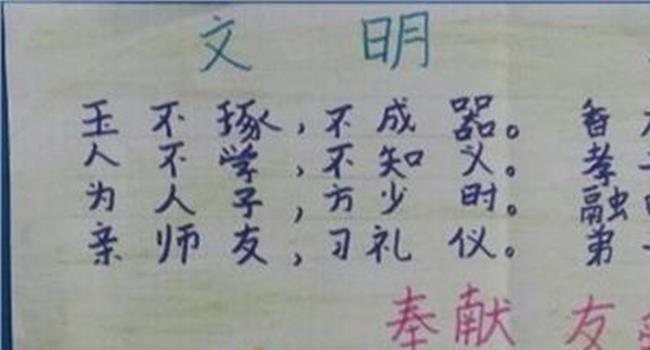 文明
玉不琢，不成器。 香
人不学，不知义。 孝
为人子，方少时。 融
亲师友，习礼仪。 弟
奉献 友